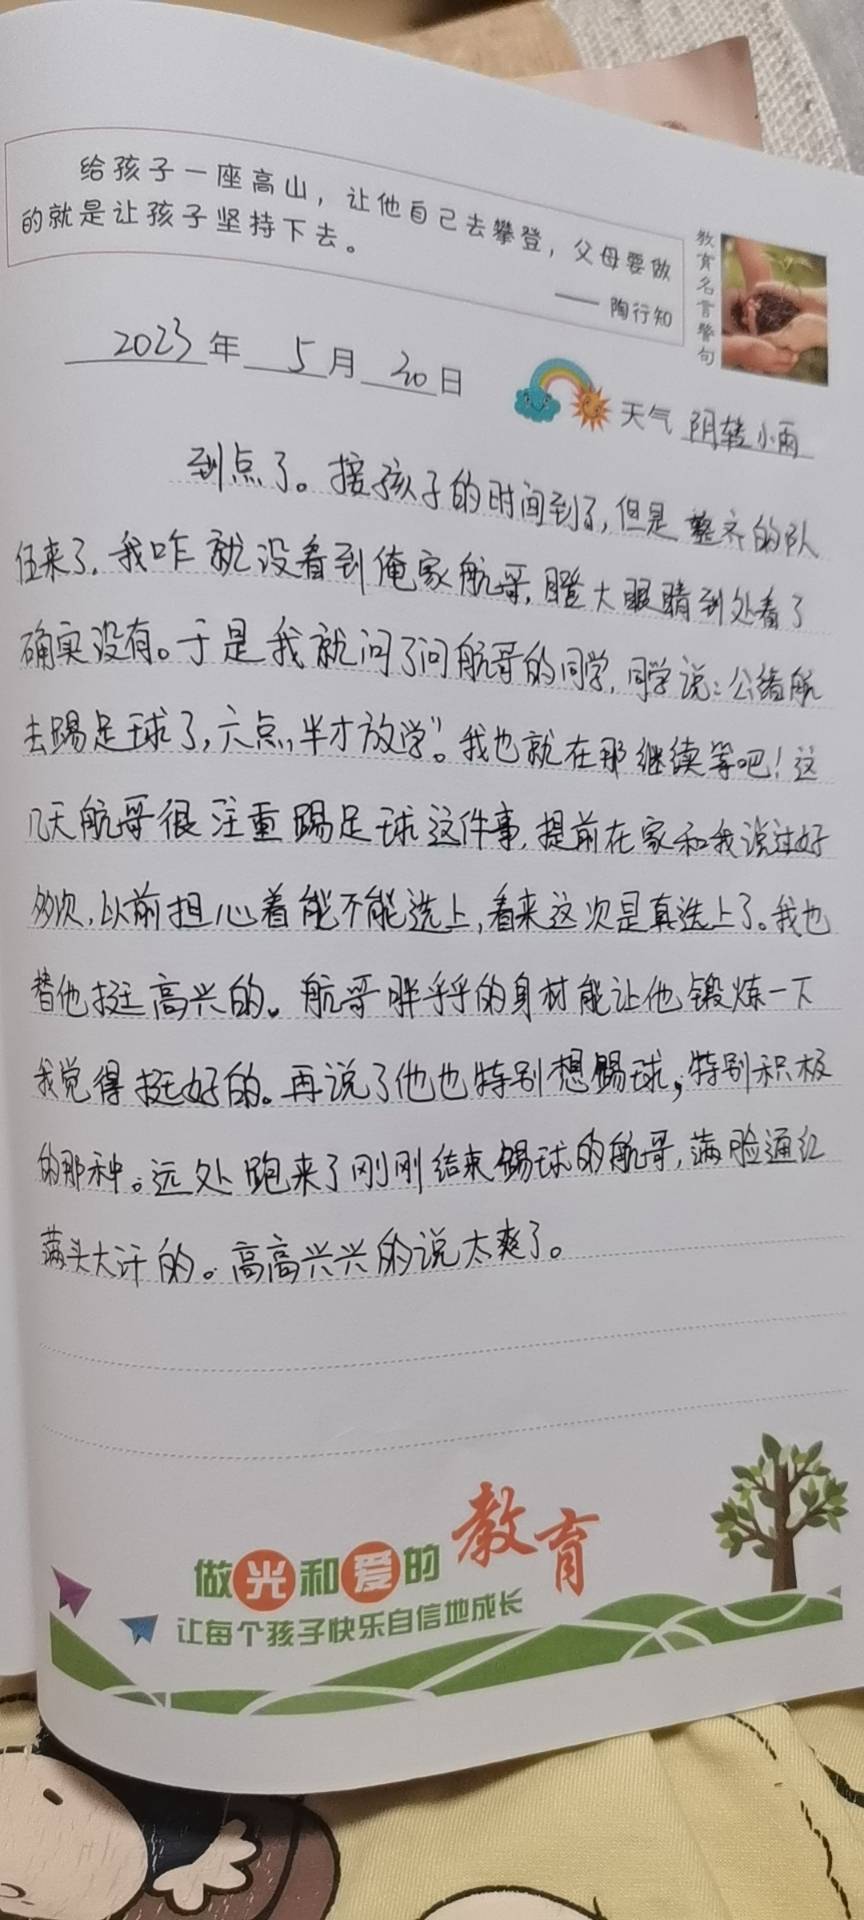 给孩子一座高山，让他自己去攀登，父母要做
的就是让孩子坚持下去。
—— 陶行知
教育名言警句
2023年 5月 30日
天气 阴转小雨
到点了。接孩子的时间到了，但是整齐的队
伍来了，我咋就没看到俺家航哥，瞪大眼睛到处看了
确实没有。于是我就问了问航哥的同学，同学说：公绪航
去踢足球了，六点，半才放学”。我也就在那继续等吧！这
几天航哥很注重踢足球这件事，提前在家和我说过好
多次，以前担心着能不能选上，看来这次是真选上了。我也
替他挺高兴的。航哥胖乎乎的身材能让他锻炼一下
我觉得挺好的。再说了他也特别想踢球，特别积极
的那种。远处跑来了刚刚结束踢球的航哥，满脸通红
满头大汗的。高高兴兴的说太爽了。
做光和爱的教育
让每个孩子快乐自信地成长